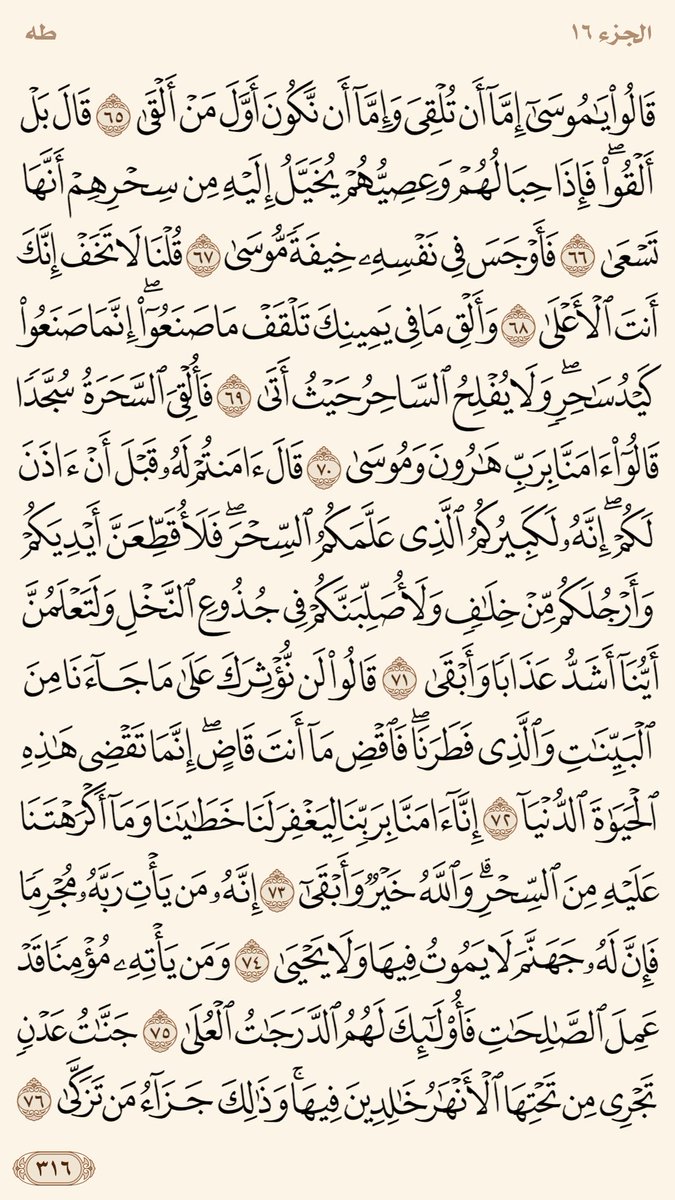 الجزء ١٦
طه
قَالُوا۟ يَـٰمُوسَىٰٓ إِمَّآ أَن تُلْقِىَ وَإِمَّآ أَن نَّكُونَ أَوَّلَ مَنْ أَلْقَىٰ ٦٥ قَالَ بَلْ
أَلْقُوا۟ۖ فَإِذَا حِبَالُهُمْ وَعِصِيُّهُمْ يُخَيَّلُ إِلَيْهِ مِن سِحْرِهِمْ أَنَّهَا
تَسْعَىٰ ٦٦ فَأَوْجَسَ فِى نَفْسِهِۦ خِيفَةً مُّوسَىٰ ٦٧ قُلْنَا لَا تَخَفْ إِنَّكَ
أَنتَ ٱلْأَعْلَىٰ ٦٨ وَأَلْقِ مَا فِى يَمِينِكَ تَلْقَفْ مَا صَنَعُوٓا۟ۖ إِنَّمَا صَنَعُوا۟
كَيْدُ سَـٰحِرٍۖ وَلَا يُفْلِحُ ٱلسَّاحِرُ حَيْثُ أَتَىٰ ٦٩ فَأُلْقِىَ ٱلسَّحَرَةُ سُجَّدًا
قَالُوٓا۟ ءَامَنَّا بِرَبِّ هَـٰرُونَ وَمُوسَىٰ ٧٠ قَالَ ءَامَنتُمْ لَهُۥ قَبْلَ أَنْ ءَاذَنَ
لَكُمْۖ إِنَّهُۥ لَكَبِيرُكُمُ ٱلَّذِى عَلَّمَكُمُ ٱلسِّحْرَۖ فَلَأُقَطِّعَنَّ أَيْدِيَكُمْ
وَأَرْجُلَكُم مِّنْ خِلَـٰفٍ وَلَأُصَلِّبَنَّكُمْ فِى جُذُوعِ ٱلنَّخْلِ وَلَتَعْلَمُنَّ
أَيُّنَآ أَشَدُّ عَذَابًا وَأَبْقَىٰ ٧١ قَالُوا۟ لَن نُّؤْثِرَكَ عَلَىٰ مَا جَآءَنَا مِنَ
ٱلْبَيِّنَـٰتِ وَٱلَّذِى فَطَرَنَاۖ فَٱقْضِ مَآ أَنتَ قَاضٍۖ إِنَّمَا تَقْضِى هَـٰذِهِ
ٱلْحَيَوٰةَ ٱلدُّنْيَآ ٧٢ إِنَّآ ءَامَنَّا بِرَبِّنَا لِيَغْفِرَ لَنَا خَطَـٰيَـٰنَا وَمَآ أَكْرَهْتَنَا
عَلَيْهِ مِنَ ٱلسِّحْرِۗ وَٱللَّهُ خَيْرٌ وَأَبْقَىٰٓ ٧٣ إِنَّهُۥ مَن يَأْتِ رَبَّهُۥ مُجْرِمًا
فَإِنَّ لَهُۥ جَهَنَّمَ لَا يَمُوتُ فِيهَا وَلَا يَحْيَىٰ ٧٤ وَمَن يَأْتِهِۦ مُؤْمِنًا قَدْ
عَمِلَ ٱلصَّـٰلِحَـٰتِ فَأُو۟لَـٰٓئِكَ لَهُمُ ٱلدَّرَجَـٰتُ ٱلْعُلَىٰ ٧٥ جَنَّـٰتُ عَدْنٍ
تَجْرِى مِن تَحْتِهَا ٱلْأَنْهَـٰرُ خَـٰلِدِينَ فِيهَاۚ وَذَٰلِكَ جَزَآءُ مَن تَزَكَّىٰ ٧٦
٣١٦